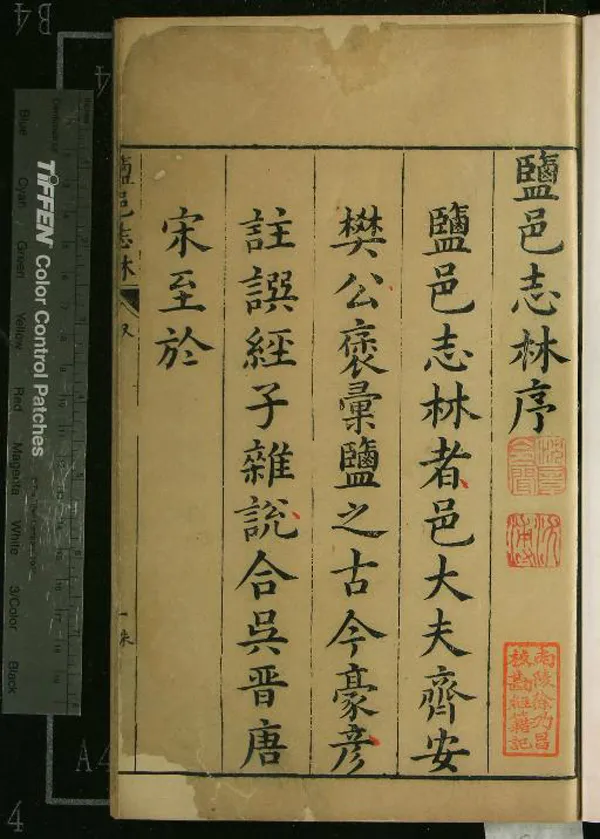 鹽邑志林序
鹽邑志林者邑大夫齊安
樊公裒彙鹽之古今豪彥
註譔經子雜說合吳晉唐
宋至於
南陵徐乃昌
校勘經籍記
鹽邑志林
一
TIFFEN Color Control Patches
Blue Cyan Green Yellow Red Magenta White 3/Color Black
B4
4
A4
4